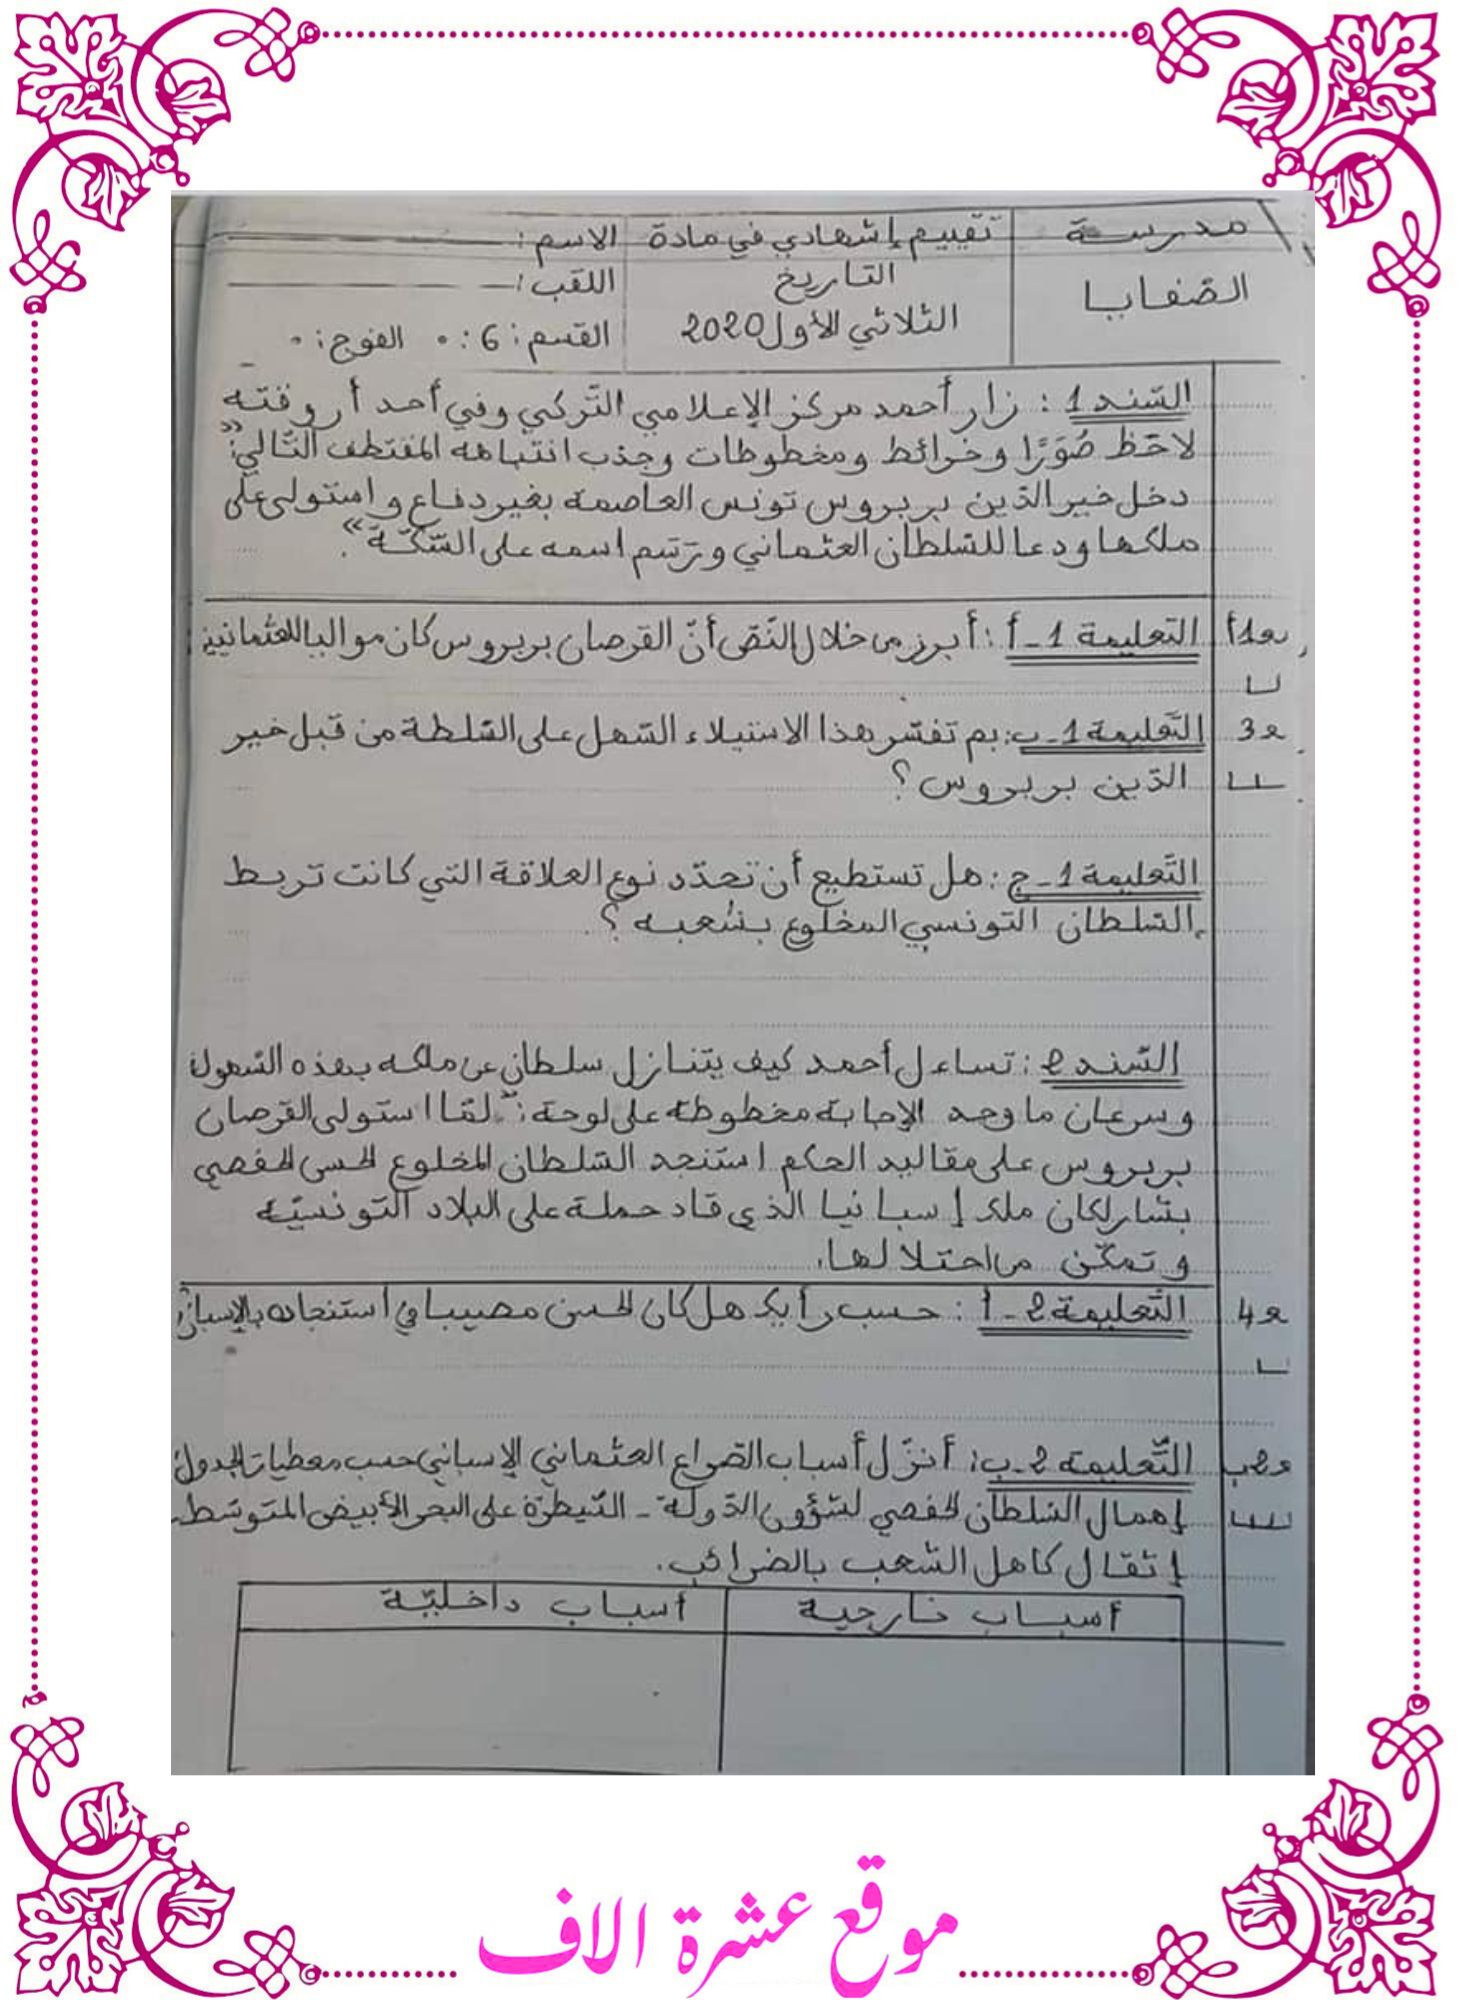 مدرسة
الصفايا
تقييم إشهادي في مادة
التاريخ
الثلاثي الأول 2020
الاسم:
اللقب:
القسم: 6: الفوج:
السّند 1: زار أحمد مركز الإعلامي التّركي وفي أحد أروقته
لاحظ صُوَرًا وخرائط ومخطوطات وجذب انتباهه المقتطف التّالي: "
دخل خير الدّين بربروس تونس العاصمة بغير دفاع واستولى على
ملكها ودعا للسّلطان العثماني ورسّم اسمه على السّكّة".
مع1أ
التّعليمة 1-أ: أبرز من خلال النّصّ أنّ القرصان بربروس كان مواليا للعثمانيين:
مع3
التّعليمة 1-ب: بم تفسّر هذا الاستيلاء السّهل على السّلطة من قبل خير
الدّين بربروس؟
التّعليمة 1-ج: هل تستطيع أن تحدّد نوع العلاقة التي كانت تربط
السّلطان التونسي المخلوع بشعبه؟
السّند 2: تساءل أحمد كيف يتنازل سلطان عن ملكه بهذه السّهولة
وسرعان ما وجد الإجابة مخطوطة على لوحة: "لمّا استولى القرصان
بربروس على مقاليد الحكم استنجد السّلطان المخلوع الحسن الحفصي
بشارلكان ملك إسبانيا الذي قاد حملة على البلاد التّونسيّة
وتمكّن من احتلالها.
مع4
التّعليمة 2-أ: حسب رأيك هل كان الحسن مصيبا في استنجاده بالإسبان
مع2ب
التّعليمة 2-ب: أنزّل أسباب الصّراع العثماني الإسباني حسب معطيات الجدول
إهمال السّلطان الحفصي لشؤون الدّولة - السّيطرة على البحر الأبيض المتوسّط.
إثقال كاهل الشّعب بالضرائب.
أسباب خارجية
أسباب داخليّة
موقع عشرة الاف